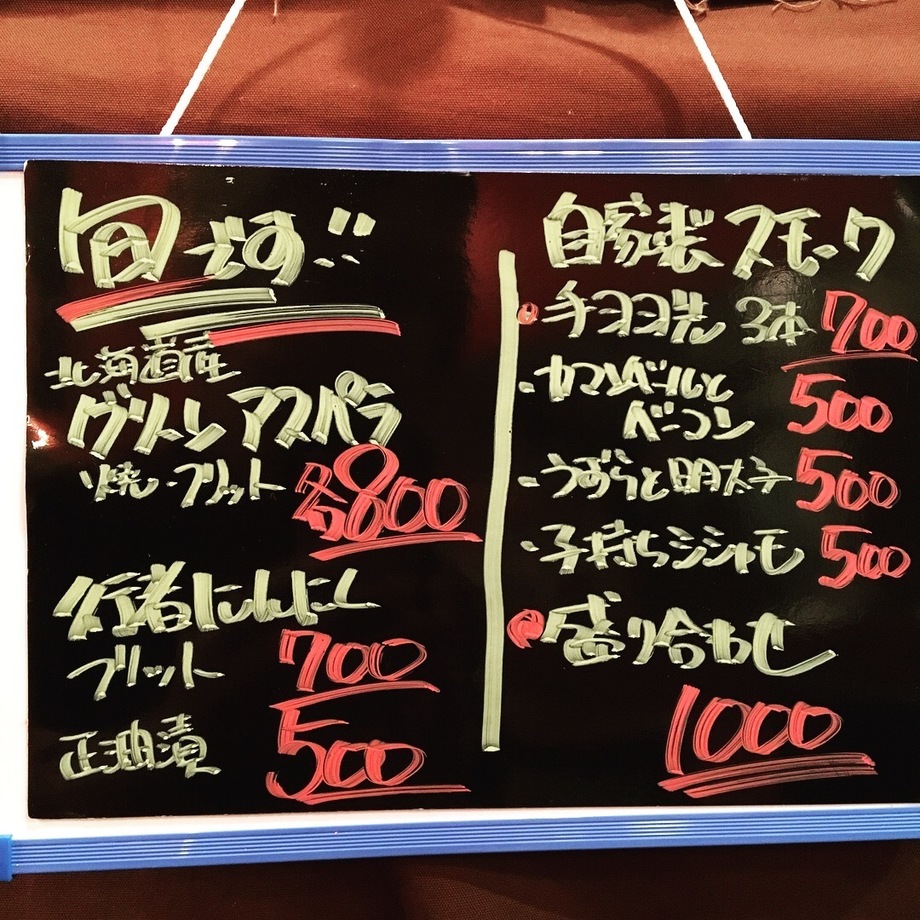 旬です!!
北海道産
グリーンアスパラ
焼・フリット 各800
行者にんにく
フリット 700
正油漬 500
自家製スモーク
手ヨコ先 3本 700
・カマンベールと
ベーコン 500
・うずらと明太子 500
・子持ちシシャモ 500
盛り合わせ
1000